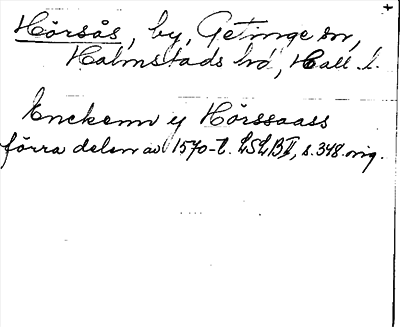 Hörsås, by, Getinge sn,
Halmstads hd, Hall. l.
Enckenn y Hörssaass
förra delen av 1570-t. LSLBII, s. 348. orig.